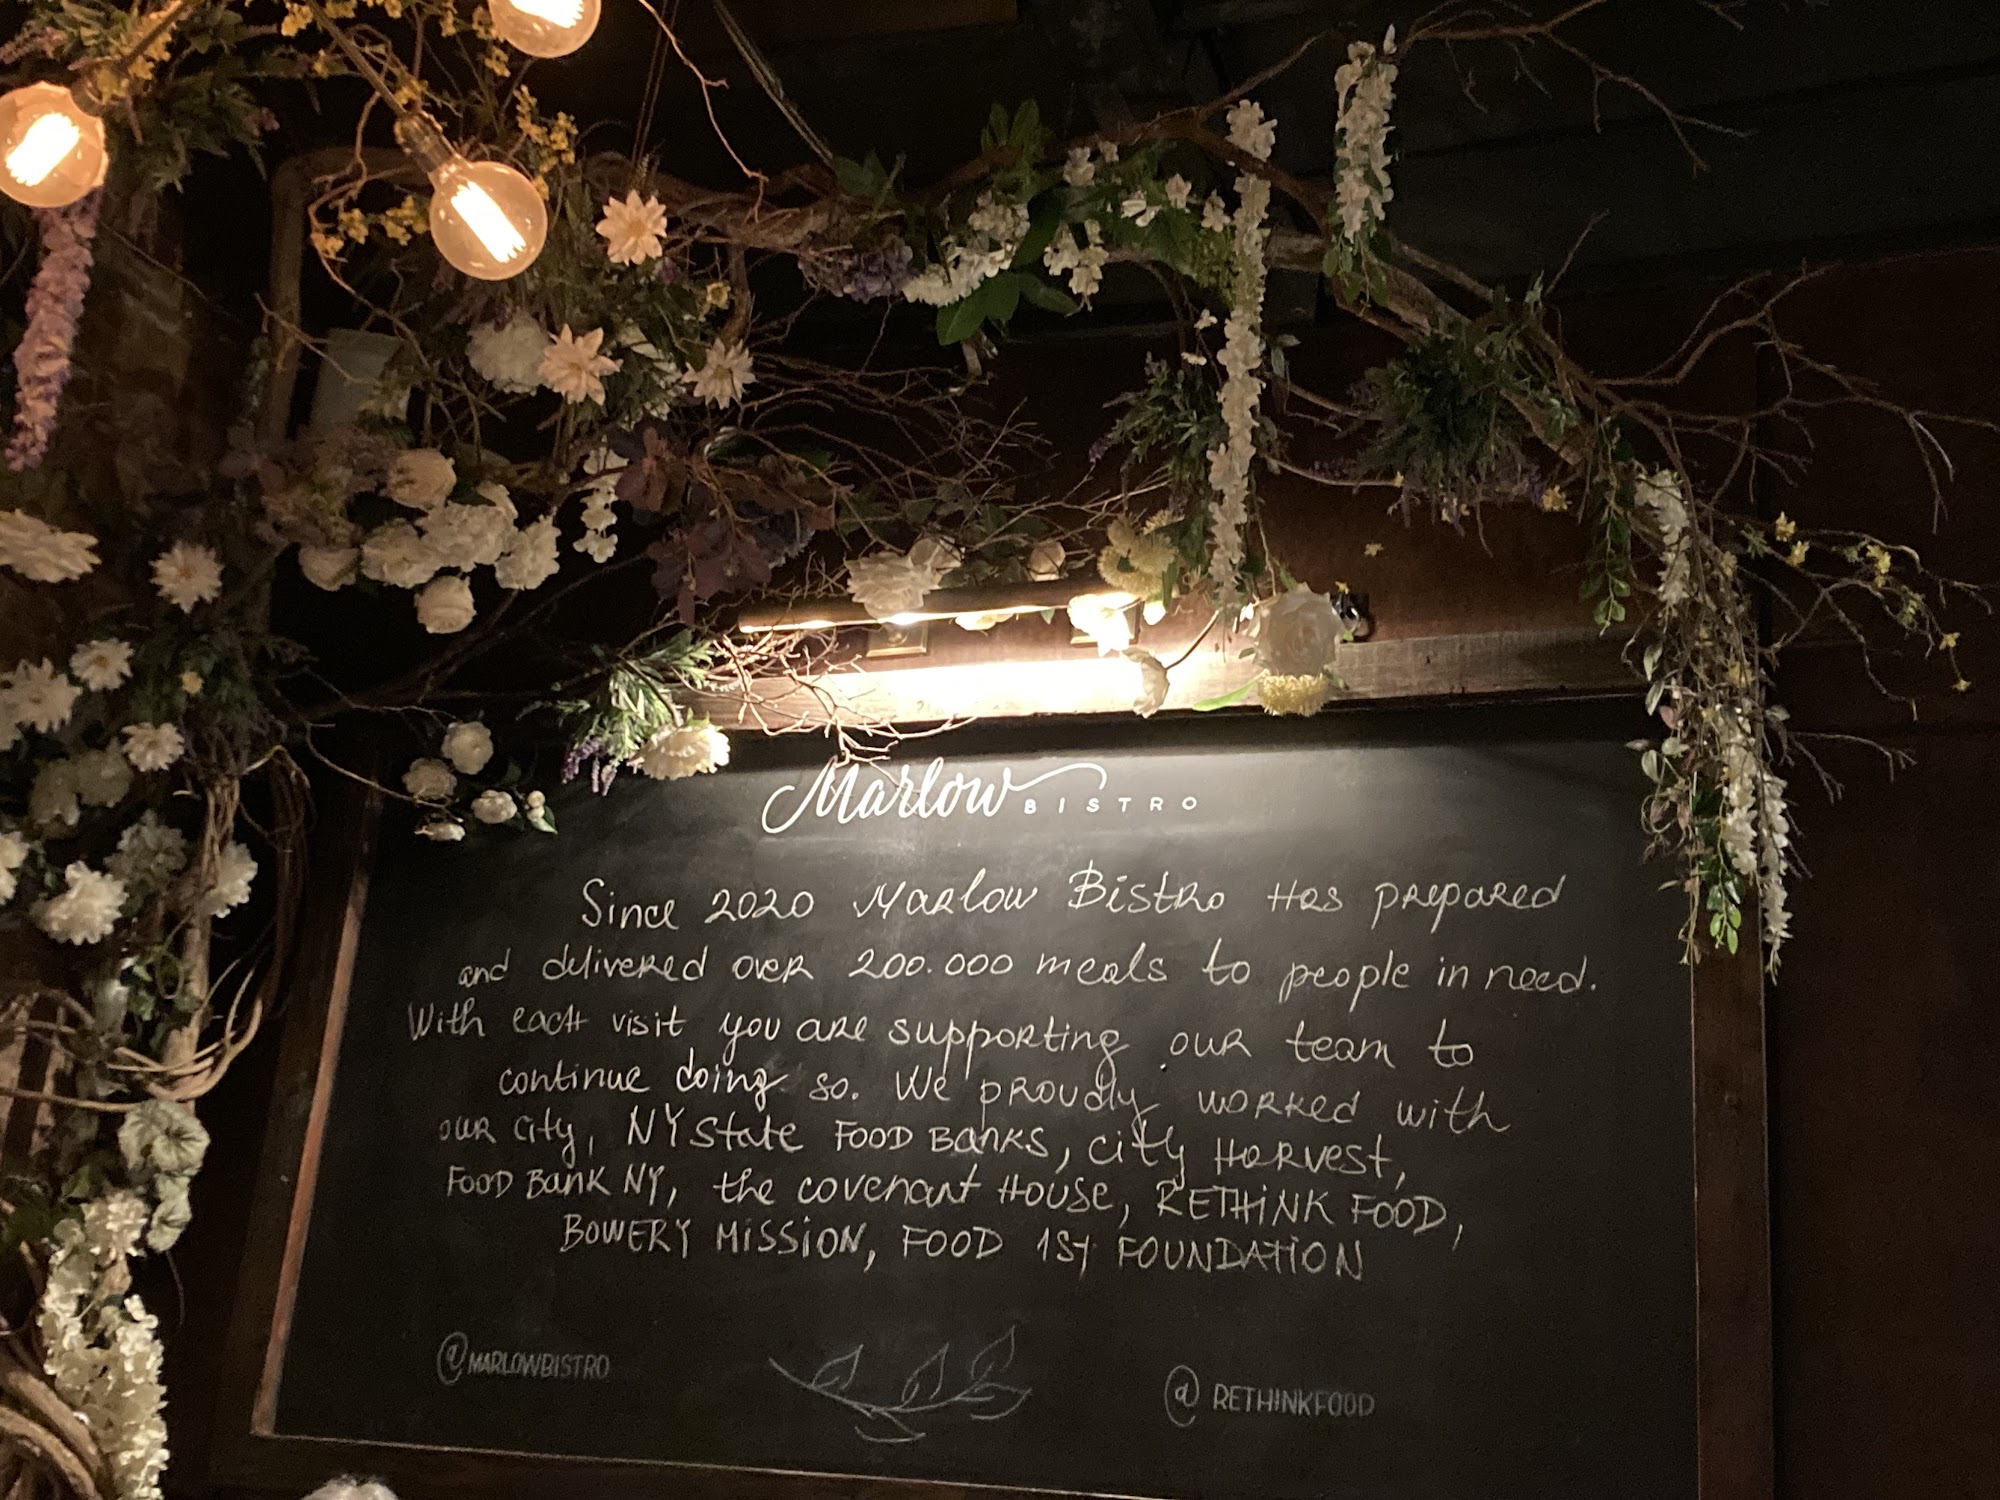 Marlow BISTRO
Since 2020 Marlow Bistro Has prepared
and delivered over 200.000 meals to people in need.
With each visit you are supporting our team to
continue doing so. We proudly worked with
our city, NY State FOOD BANKS, city Harvest,
FOOD BANK NY, the covenant House, RETHINK FOOD,
BOWERY MISSION, FOOD 1ST FOUNDATION
@MARLOWBISTRO
@ RETHINKFOOD